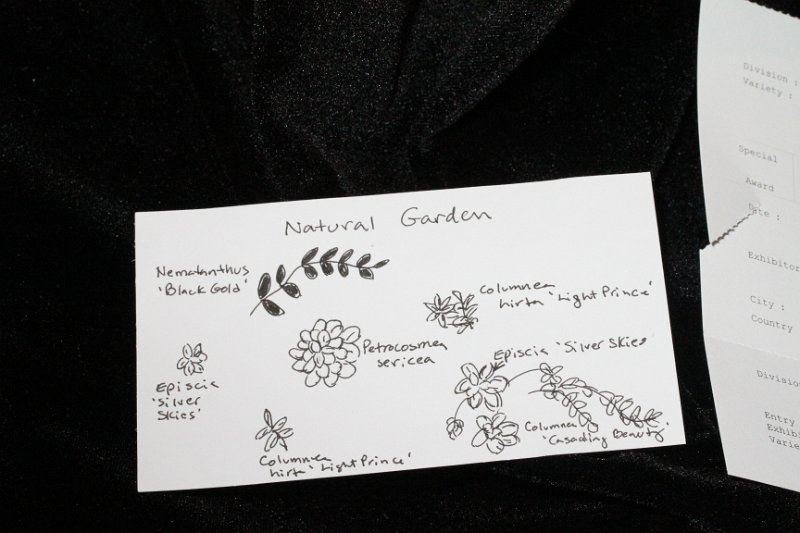 Natural Garden
Nematanthus
'Black Gold'
Columnea
hirta 'Light Prince'
Petrocosmea
sericea
Episcia 'Silver Skies
Episcia
'Silver
Skies'
Columnea
'Cascading Beauty'
Columnea
hirta 'Light Prince'
Division :
Variety :
Special
Award
Date :
Exhibitor
City :
Country
Divisio
Entry
Exhibi
Varie